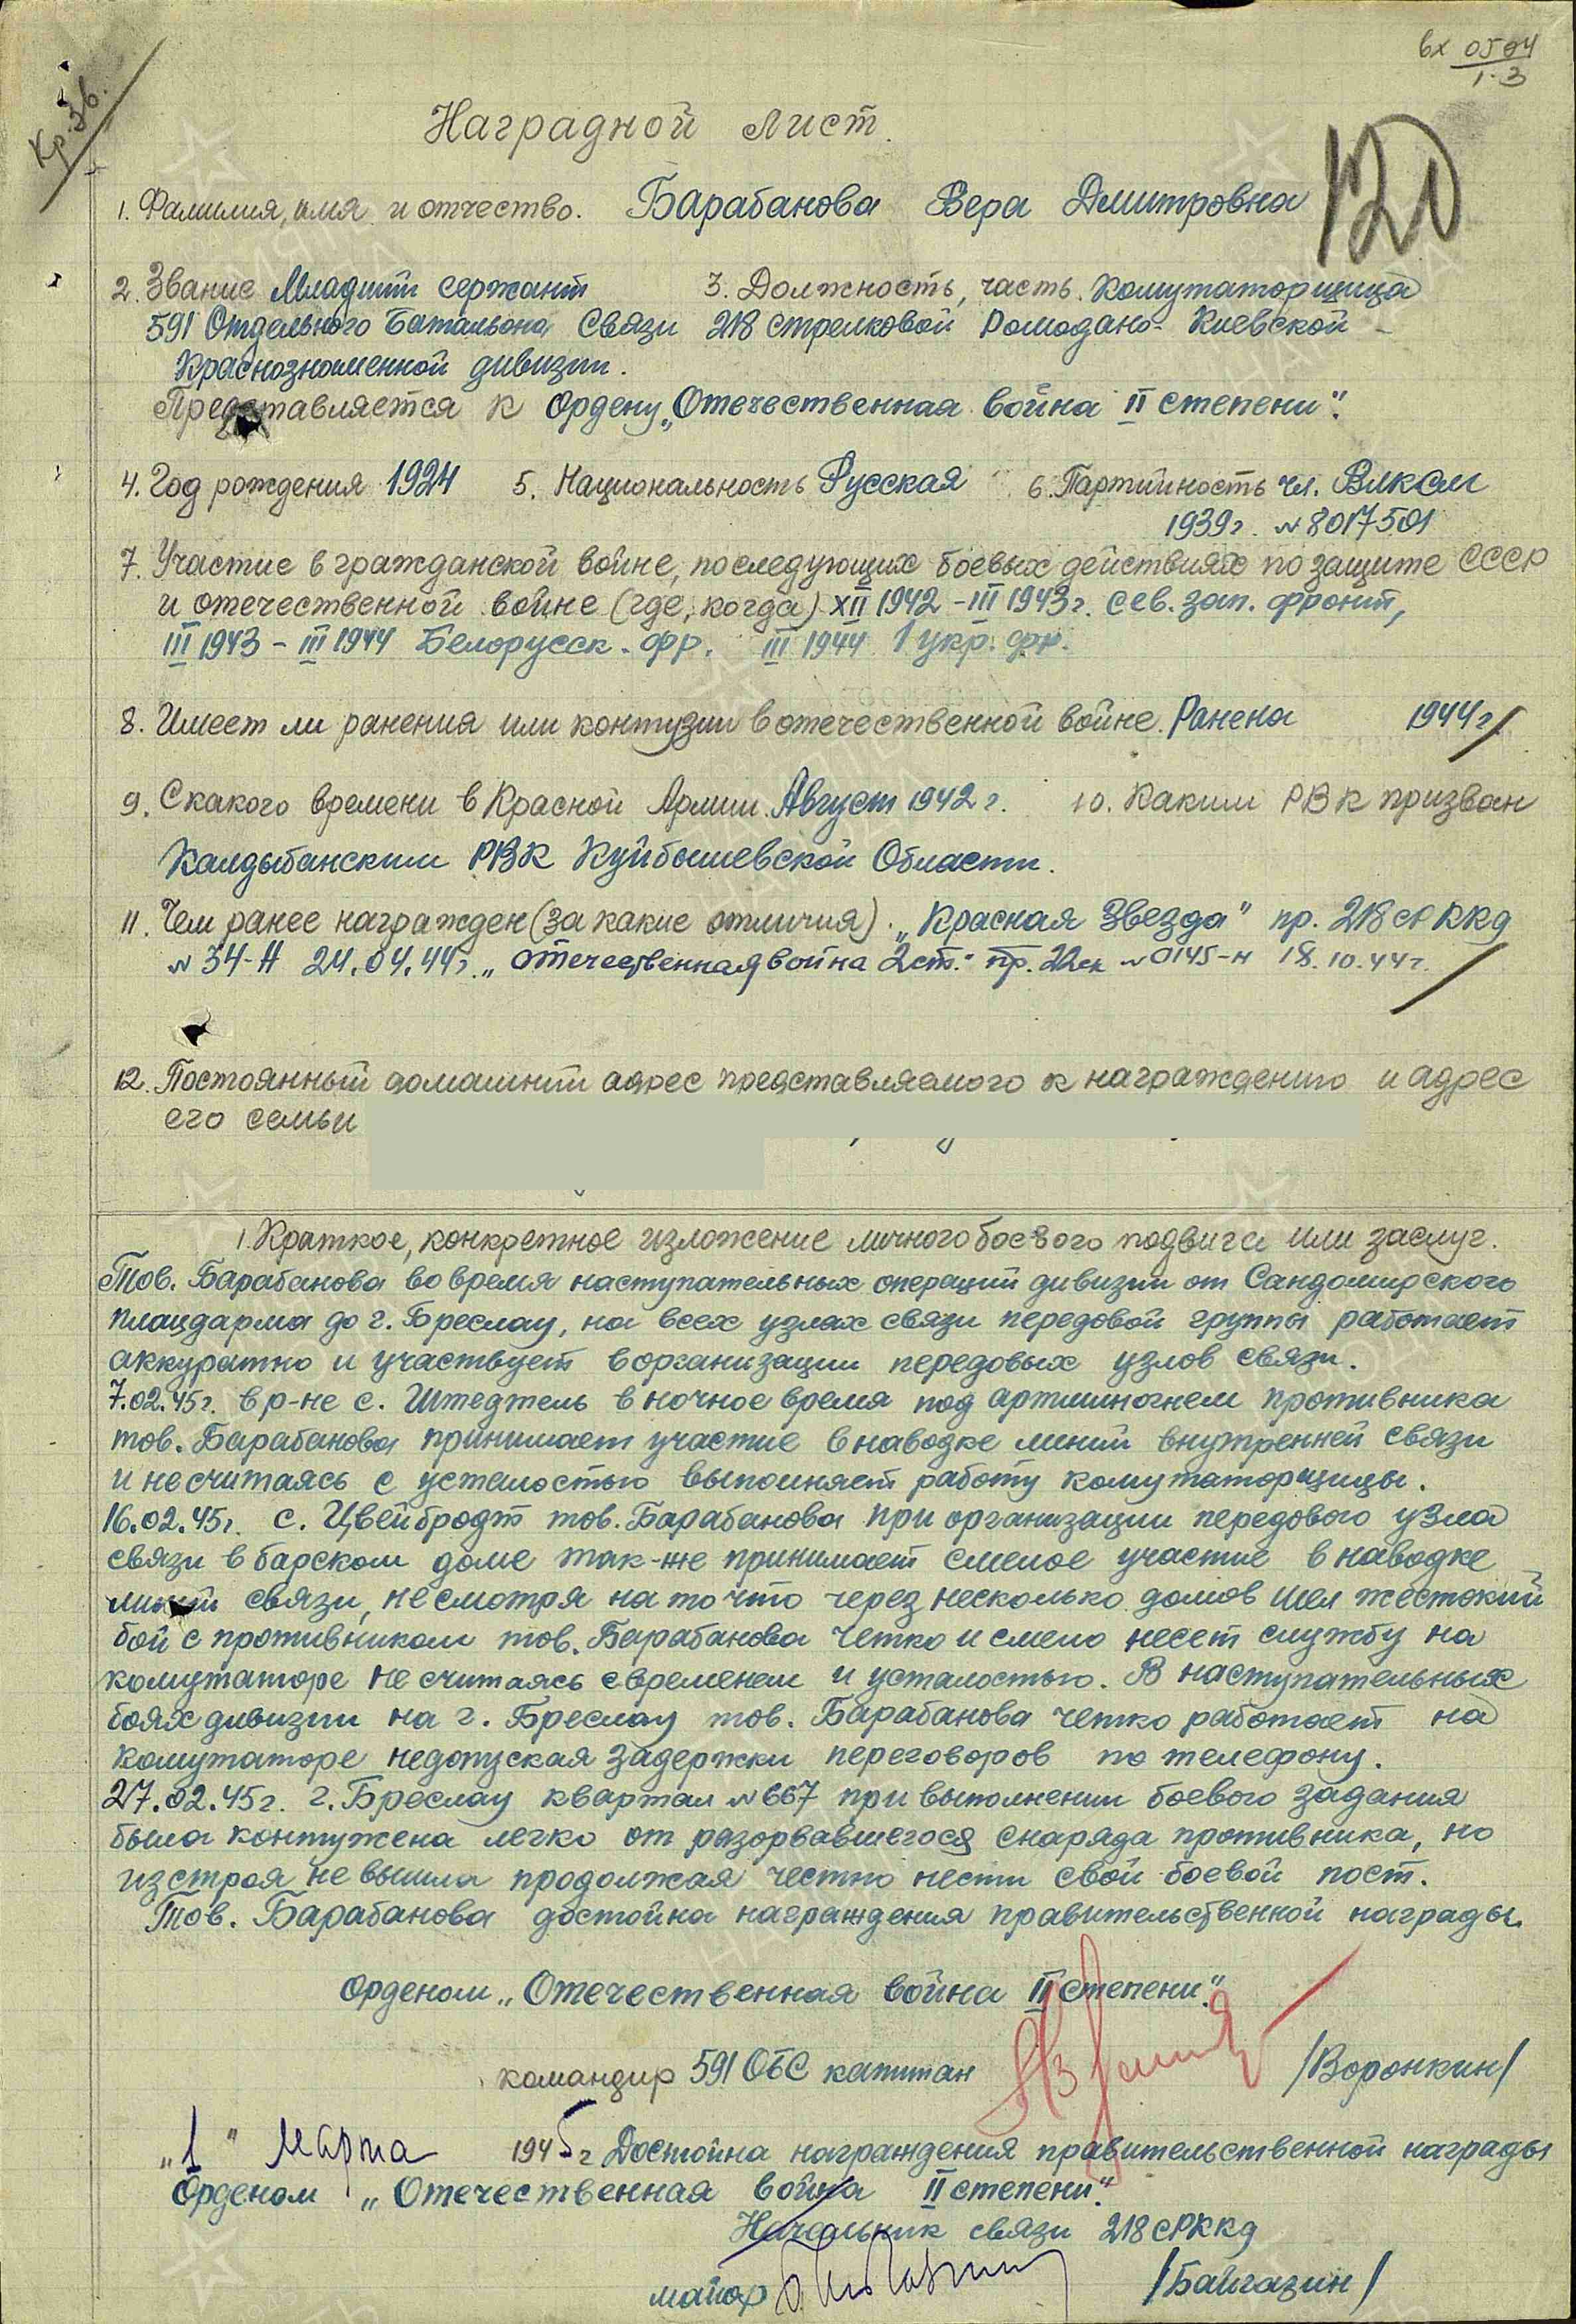 вх 0504
1.3
Кр. Зв.
Наградной лист.
120
1. Фамилия, имя и отчество. Барабанова Вера Дмитровна
2. Звание Младший сержант 3. Должность, часть. Комутаторщица
591 Отдельного Батальона Связи 218 стрелковой Ромодано-Киевской
Краснознаменной дивизии.
Представляется к Ордену „Отечественная война II степени".
4. Год рождения 1924 5. Национальность Русская 6. Партийность чл. Влксм
1939г. № 8017501
7. Участие в гражданской войне, последующих боевых действиях по защите СССР
и отечественной войне (где, когда) XII 1942 - III 1943г. сев. зап. фронт,
III 1943 - III 1944 Белорусск. фр. III 1944 1 укр. фр.
8. Имеет ли ранения или контузии в отечественной войне. Ранена 1944г.
9. С какого времени в Красной Армии. Август 1942 г. 10. Каким РВК призван
Калдыбанским РВК Куйбышевской Области.
11. Чем ранее награжден (за какие отличия). „Красная Звезда" пр. 218 СРККд
№ 34-Н 24.04.44г. „Отечественная война 2 ст." пр. 22ск №0145-н 18.10.44г.
12. Постоянный домашний адрес представляемого к награждению и адрес
его семьи
1. Краткое, конкретное изложение личного боевого подвига или заслуг.
Тов. Барабанова во время наступательных операций дивизии от Сандомирского
плацдарма до г. Бреслау, на всех узлах связи передовой группы работает
аккуратно и участвует в организации передовых узлов связи.
7.02.45г. в р-не с. Штедтель в ночное время под артминогнем противника
тов. Барабанова принимает участие в наводке линий внутренней связи
и несчитаясь с усталостью выполняет работу комутаторщицы.
16.02.45г. с. Цвейбродт тов. Барабанова при организации передового узла
связи в барском доме так-же принимает смелое участие в наводке
линий связи, не смотря на то что через несколько домов шел жестокий
бой с противником тов. Барабанова четко и смело несет службу на
комутаторе не считаясь с временем и усталостью. В наступательных
боях дивизии на г. Бреслау тов. Барабанова четко работает на
комутаторе недопуская задержки переговоров по телефону.
27.02.45г. г. Бреслау квартал №667 при выполнении боевого задания
была контужена легко от разорвавшегося снаряда противника, но
из строя не вышла продолжая честно нести свой боевой пост.
Тов. Барабанова достойна награждения правительственной награды
орденом „Отечественная война II степени".
командир 591 ОБС капитан /Воронкин/
„1" Марта 1945г Достойна награждения правительственной награды
Орденом „Отечественная война II степени."
Начальник связи 218 СРККд
майор /Байгазин/